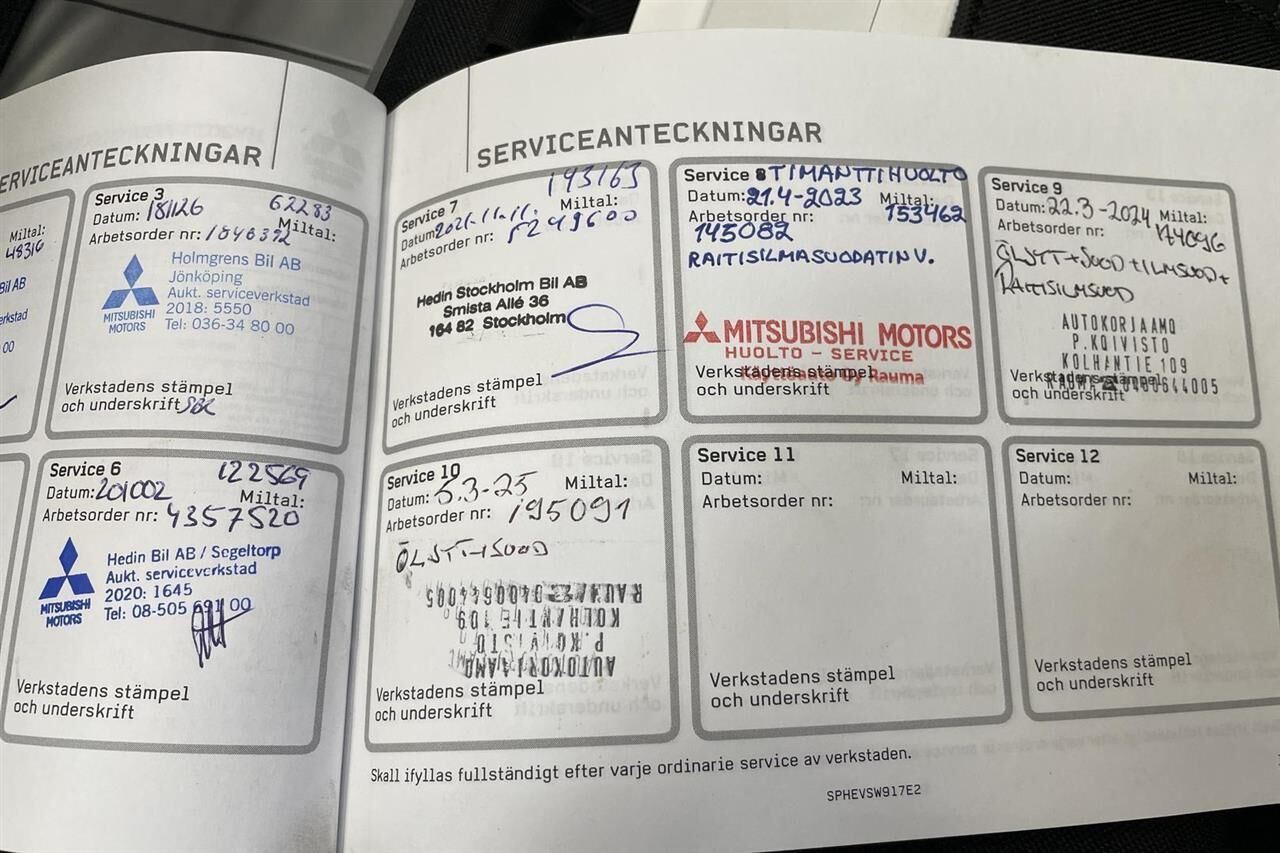 SERVICEANTECKNINGAR
Miltal:
48316
Bil AB
rkstad
00
Service 3
62283
Datum: 181126
Miltal:
Arbetsorder nr: 1846392
MITSUBISHI
MOTORS
Holmgrens Bil AB
Jönköping
Aukt. serviceverkstad
2018: 5550
Tel: 036-34 80 00
Verkstadens stämpel
och underskrift
Service 6
122569
Datum: 201002
Miltal:
Arbetsorder nr: 4357520
MITSUBISHI
MOTORS
Hedin Bil AB / Segeltorp
Aukt. serviceverkstad
2020: 1645
Tel: 08-505 691 00
Verkstadens stämpel
och underskrift
SERVICEANTECKNINGAR
Service 7
143163
Datum: 2021-11-11.
Miltal:
Arbetsorder nr: 5249600
Hedin Stockholm Bil AB
Smista Allé 36
164 82 Stockholm
Verkstadens stämpel
och underskrift
Service 8 TIMANTTIHUOLTO
Datum: 21.4-2023 Miltal:
Arbetsorder nr: 153462
145082
RAITISILMASUODATIN V.
MITSUBISHI MOTORS
HUOLTO - SERVICE
Käyttöauto Oy Rauma
Verkstadens stämpel
och underskrift
Service 9
Datum: 22.3-2024 Miltal:
Arbetsorder nr: 174096
ÖLJYT+SUOD+ILMSUOD+
RAITISILMSUOD
AUTOKORJAAMO
P.KOIVISTO
KOLHANTIE 109
RAUMA 0400644005
Verkstadens stämpel
och underskrift
Service 10
Datum: 3.3-25 Miltal:
Arbetsorder nr: 195091
ÖLJYT+SUOD
RAUMA 0400644005
KOLHANTIE 109
P.KOIVISTO
AUTOKORJAAMO
Verkstadens stämpel
och underskrift
Service 11
Datum: Miltal:
Arbetsorder nr:
Verkstadens stämpel
och underskrift
Service 12
Datum: Miltal:
Arbetsorder nr:
Verkstadens stämpel
och underskrift
Skall ifyllas fullständigt efter varje ordinarie service av verkstaden.
SPHEVSW917E2